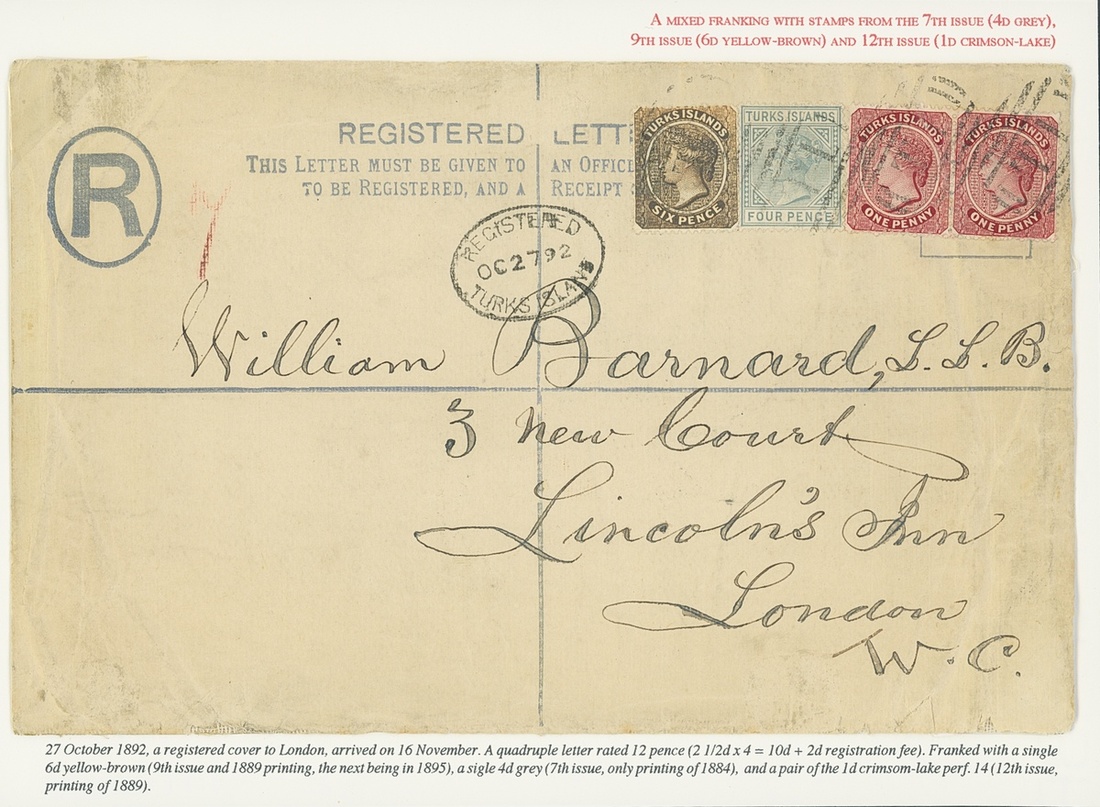 A MIXED FRANKING WITH STAMPS FROM THE 7TH ISSUE (4D GREY),
9TH ISSUE (6D YELLOW-BROWN) AND 12TH ISSUE (1D CRIMSON-LAKE)
R
REGISTERED LETT
THIS LETTER MUST BE GIVEN TO AN OFFIC
TO BE REGISTERED, AND A RECEIPT
TURKS ISLANDS
SIX PENCE
TURKS ISLANDS
FOUR PENCE
TURKS ISLANDS
ONE PENNY
TURKS ISLANDS
ONE PENNY
REGISTERED
OC 27 92
TURKS ISLAND
William Barnard, L.L.B.
3 New Court
Lincoln's Inn
London
W.C.
27 October 1892, a registered cover to London, arrived on 16 November. A quadruple letter rated 12 pence (2 1/2d x 4 = 10d + 2d registration fee). Franked with a single
6d yellow-brown (9th issue and 1889 printing, the next being in 1895), a sigle 4d grey (7th issue, only printing of 1884), and a pair of the 1d crimsom-lake perf. 14 (12th issue,
printing of 1889).